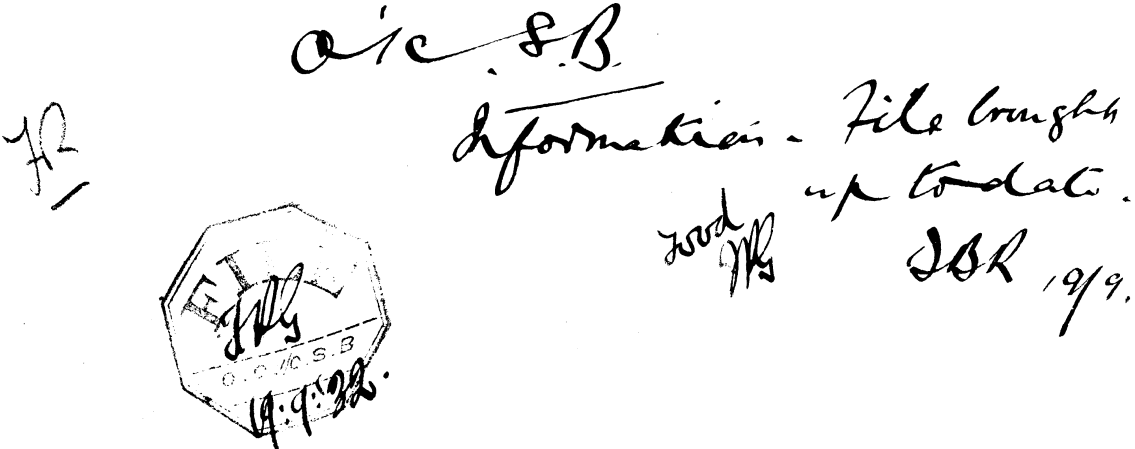 O/c. S.B.
Information - File brought
up to date.
Good
JBR 19/9.
FR
FILE
O.C./C.S.B
19:9:32.